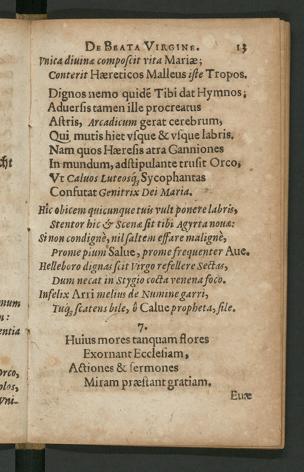 DE BEATA VIRGINE. 13
Vnica diuina composcit rita Mariæ;
Conterit Hæreticos Malleus iste Tropos.
Dignos nemo quidē Tibi dat Hymnos;
Aduersis tamen ille procreatus
Astris, Arcadicum gerat cerebrum,
Qui mutis hiet vsque & vsque labris.
Nam quos Hæresis atra Ganniones
In mundum, adstipulante trusit Orco,
Vt Caluos Luteosq́, Sycophantas
Confutat Genitrix Dei Maria.
Hic obicem quicunque tuis vult ponere labris,
Stentor hic & Scena sit tibi Agyrta noua:
Si non condignè, nil saltem effare malignè,
Prome pium Salue, prome frequenter Aue.
Helleboro dignas scit Virgo refellere Sectas,
Dum necat in Stygio cocta venena foco.
Infelix Arri melius de Numine garri,
Tuq́, scatens bile, ô Calue propheta, sile.
7.
Huius mores tanquam flores
Exornant Ecclesiam,
Actiones & sermones
Miram præstant gratiam.
Euæ
cht
num
n:
entia
Orco,
olos,
Vni-